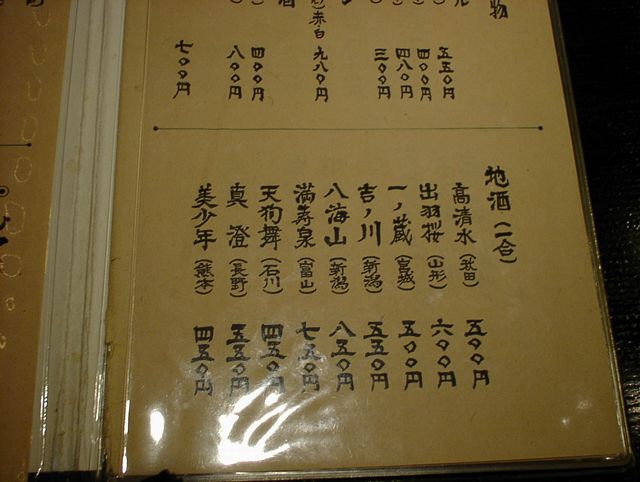 物
五五〇円
四〇〇円
四八〇円
三〇〇円
赤白 九八〇円
四〇〇円
八〇〇円
七〇〇円
地酒（一合）
高清水（秋田） 五〇〇円
出羽桜（山形） 六〇〇円
一ノ蔵（宮城） 五〇〇円
吉ノ川（新潟） 五五〇円
八海山（新潟） 八五〇円
満寿泉（富山） 七五〇円
天狗舞（石川） 四五〇円
真澄（長野） 五五〇円
美少年（熊本） 四五〇円